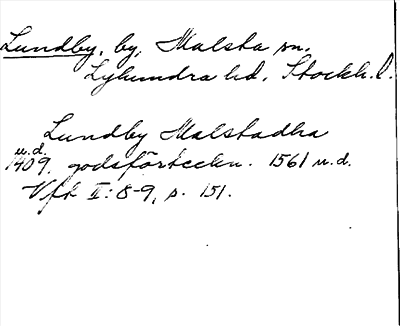 Lundby, by, Malsta sn.
Lyhundra hd. Stockh. l.
Lundby Malstadha
u.d.
1409. godsförteckn. 1561 u.d.
Vft II: 8-9, s. 151.